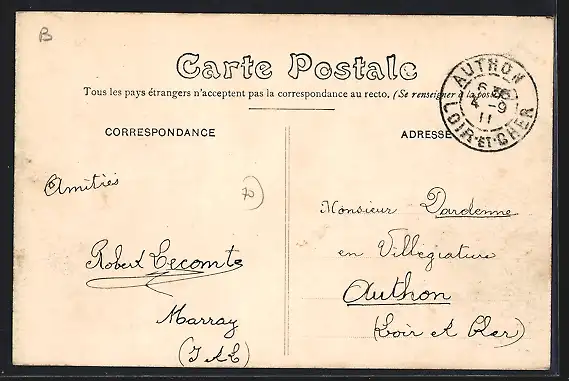 B
Carte Postale
Tous les pays étrangers n'acceptent pas la correspondance au recto. (Se renseigner à la poste)
CORRESPONDANCE
ADRESSE
AUTHON
6 35
4 -9
11
LOIR-ET-CHER
Amitiés
70
Robert Lecomte
Marray
(I & L)
Monsieur Dardenne
en Villégiature
Authon
(Loir et Cher)